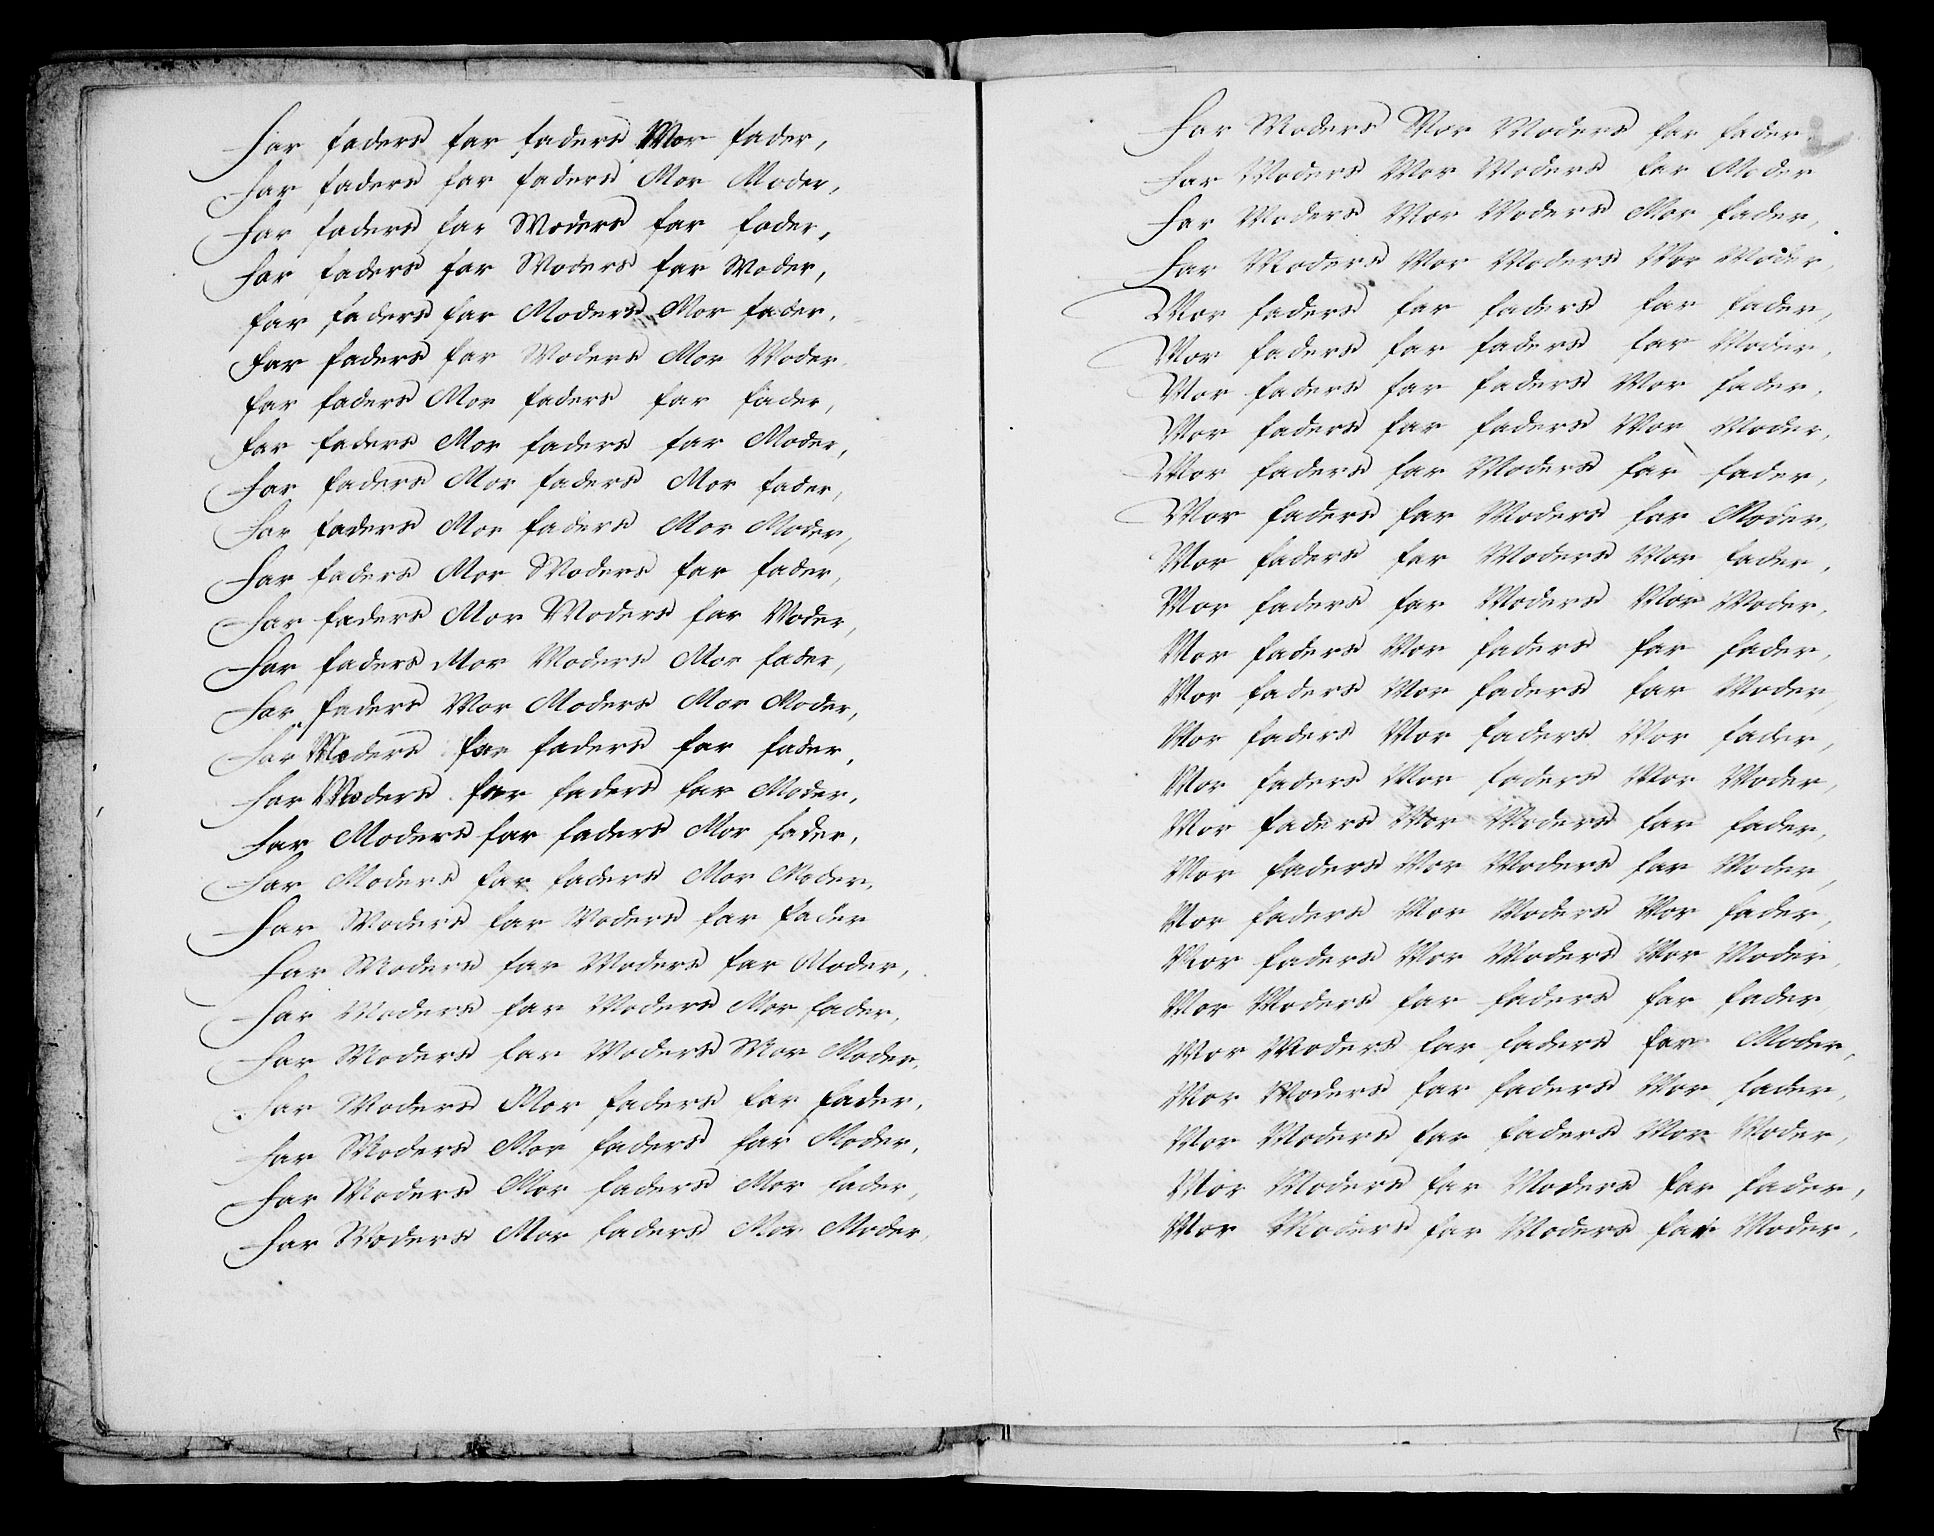 Far faders far faders Mor fader,
Far faders far faders Mor Moder,
Far faders far Moders far fader,
Far faders far Moders far Moder,
far faders far Moders Mor fader,
Far faders far Moders Mor Moder,
far faders Mor faders far fader,
far faders Mor faders far Moder,
Far faders Mor faders Mor fader,
Far faders Mor faders Mor Moder,
Far faders Mor Moders far fader,
Far faders Mor Moders far Moder,
Far faders Mor Moders Mor fader,
Far faders Mor Moders Mor Moder,
Far Moders far faders far fader,
Far Moders far faders far Moder,
Far Moders far faders Mor fader,
Far Moders far faders Mor Moder,
Far Moders far Moders far fader
Far Moders far Moders far Moder,
Far Moders far Moders Mor fader,
Far Moders far Moders Mor Moder,
Far Moders Mor faders far fader,
Far Moders Mor faders far Moder,
Far Moders Mor faders Mor fader,
Far Moders Mor faders Mor Moder,
Far Moders Mor Moders far fader
Far Moders Mor Moders far Moder
Far Moders Mor Moders Mor fader,
Far Moders Mor Moders Mor Moder,
Mor faders far faders far fader,
Mor faders far faders far Moder,
Mor faders far faders Mor fader,
Mor faders far faders Mor Moder,
Mor faders far Moders far fader,
Mor faders far Moders far Moder,
Mor faders far Moders Mor fader,
Mor faders far Moders Mor Moder,
Mor faders Mor faders far fader,
Mor faders Mor faders far Moder,
Mor faders Mor faders Mor fader,
Mor faders Mor faders Mor Moder,
Mor faders Mor Moders far fader,
Mor faders Mor Moders far Moder,
Mor faders Mor Moders Mor fader,
Mor faders Mor Moders Mor Moder,
Mor Moders far faders far fader,
Mor Moders far faders far Moder,
Mor Moders far faders Mor fader,
Mor Moders far faders Mor Moder,
Mor Moders far Moders far fader,
Mor Moders far Moders far Moder,